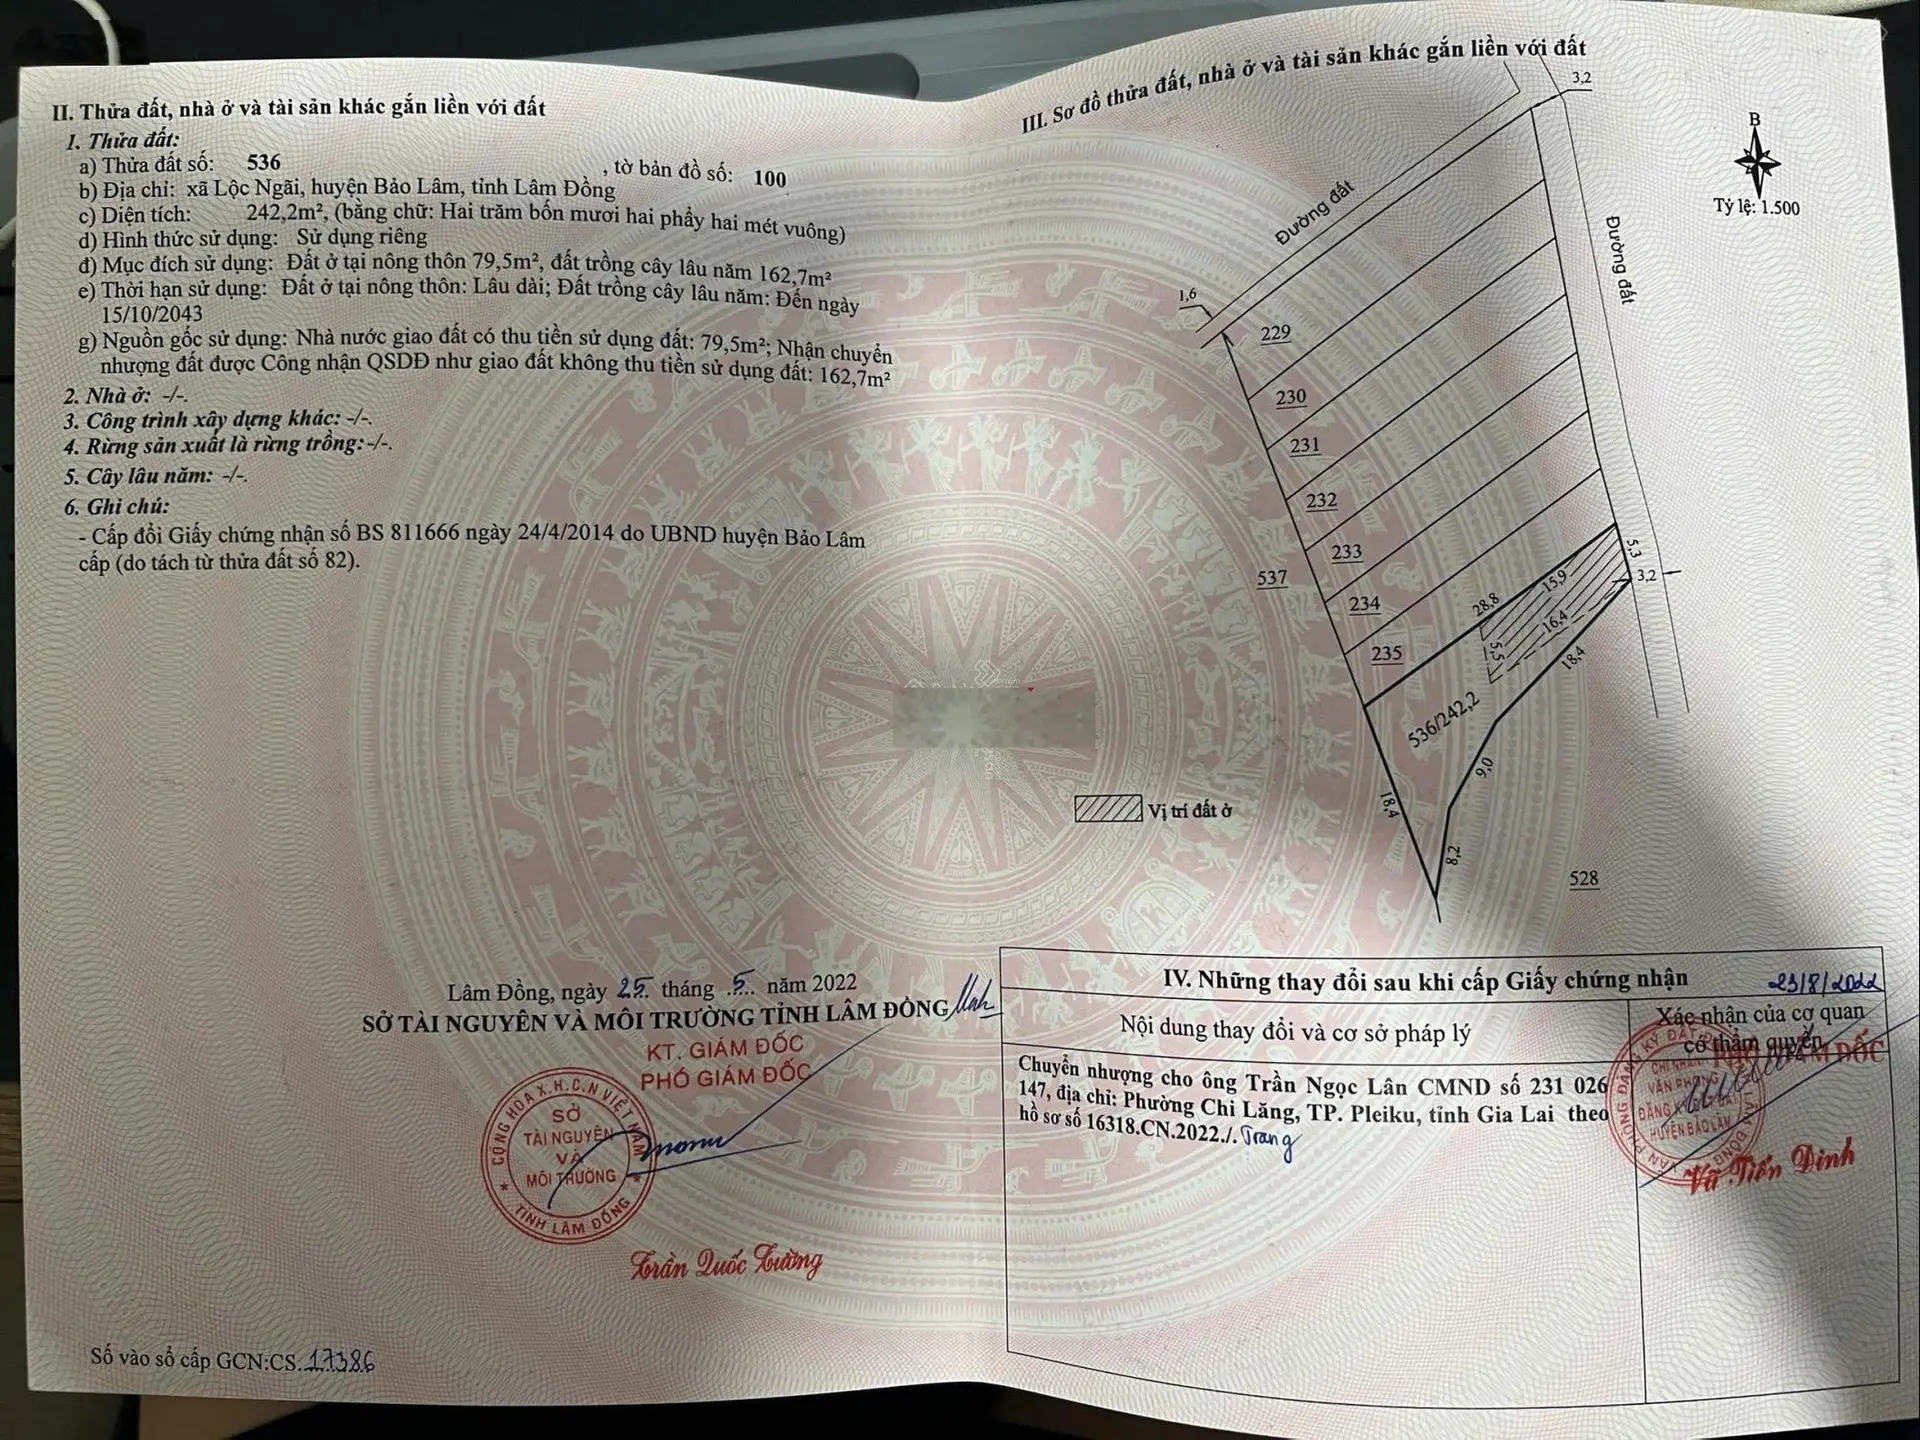 II. Thửa đất, nhà ở và tài sản khác gắn liền với đất
1. Thửa đất:
a) Thửa đất số: 536 , tờ bản đồ số: 100
b) Địa chỉ: xã Lộc Ngãi, huyện Bảo Lâm, tỉnh Lâm Đồng
c) Diện tích: 242,2m², (bằng chữ: Hai trăm bốn mươi hai phẩy hai mét vuông)
d) Hình thức sử dụng: Sử dụng riêng
đ) Mục đích sử dụng: Đất ở tại nông thôn 79,5m², đất trồng cây lâu năm 162,7m²
e) Thời hạn sử dụng: Đất ở tại nông thôn: Lâu dài; Đất trồng cây lâu năm: Đến ngày
15/10/2043
g) Nguồn gốc sử dụng: Nhà nước giao đất có thu tiền sử dụng đất: 79,5m²; Nhận chuyển
nhượng đất được Công nhận QSDĐ như giao đất không thu tiền sử dụng đất: 162,7m²
2. Nhà ở: -/-.
3. Công trình xây dựng khác: -/-.
4. Rừng sản xuất là rừng trồng:-/-.
5. Cây lâu năm: -/-.
6. Ghi chú:
- Cấp đổi Giấy chứng nhận số BS 811666 ngày 24/4/2014 do UBND huyện Bảo Lâm
cấp (do tách từ thửa đất số 82).
Lâm Đồng, ngày 25 tháng 5 năm 2022
SỞ TÀI NGUYÊN VÀ MÔI TRƯỜNG TỈNH LÂM ĐỒNG
KT. GIÁM ĐỐC
PHÓ GIÁM ĐỐC
CỘNG HÒA X.H.C.N VIỆT NAM
SỞ
TÀI NGUYÊN
VÀ
MÔI TRƯỜNG
TỈNH LÂM ĐỒNG
Trần Quốc Tường
Số vào sổ cấp GCN:CS.17386
III. Sơ đồ thửa đất, nhà ở và tài sản khác gắn liền với đất
3,2
B
Tỷ lệ: 1.500
Đường đất
Đường đất
1,6
229
230
231
232
233
234
235
537
5,3
3,2
15,9
28,8
16,4
5,5
18,4
536/242,2
9,0
18,4
8,2
528
Vị trí đất ở
IV. Những thay đổi sau khi cấp Giấy chứng nhận
23/8/2022
Nội dung thay đổi và cơ sở pháp lý
Xác nhận của cơ quan
có thẩm quyền
Chuyển nhượng cho ông Trần Ngọc Lân CMND số 231 026
147, địa chỉ: Phường Chi Lăng, TP. Pleiku, tỉnh Gia Lai theo
hồ sơ số 16318.CN.2022./. Trang
PHÓ GIÁM ĐỐC
CHI NHÁNH
VĂN PHÒNG
ĐĂNG KÝ ĐẤT ĐAI
HUYỆN BẢO LÂM
Vũ Tiến Dinh